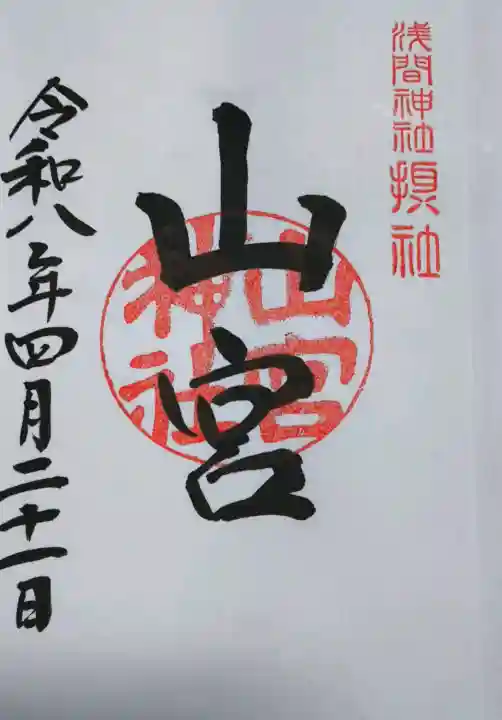 浅間神社摂社
山宮
山宮
神社
令和八年四月二十一日